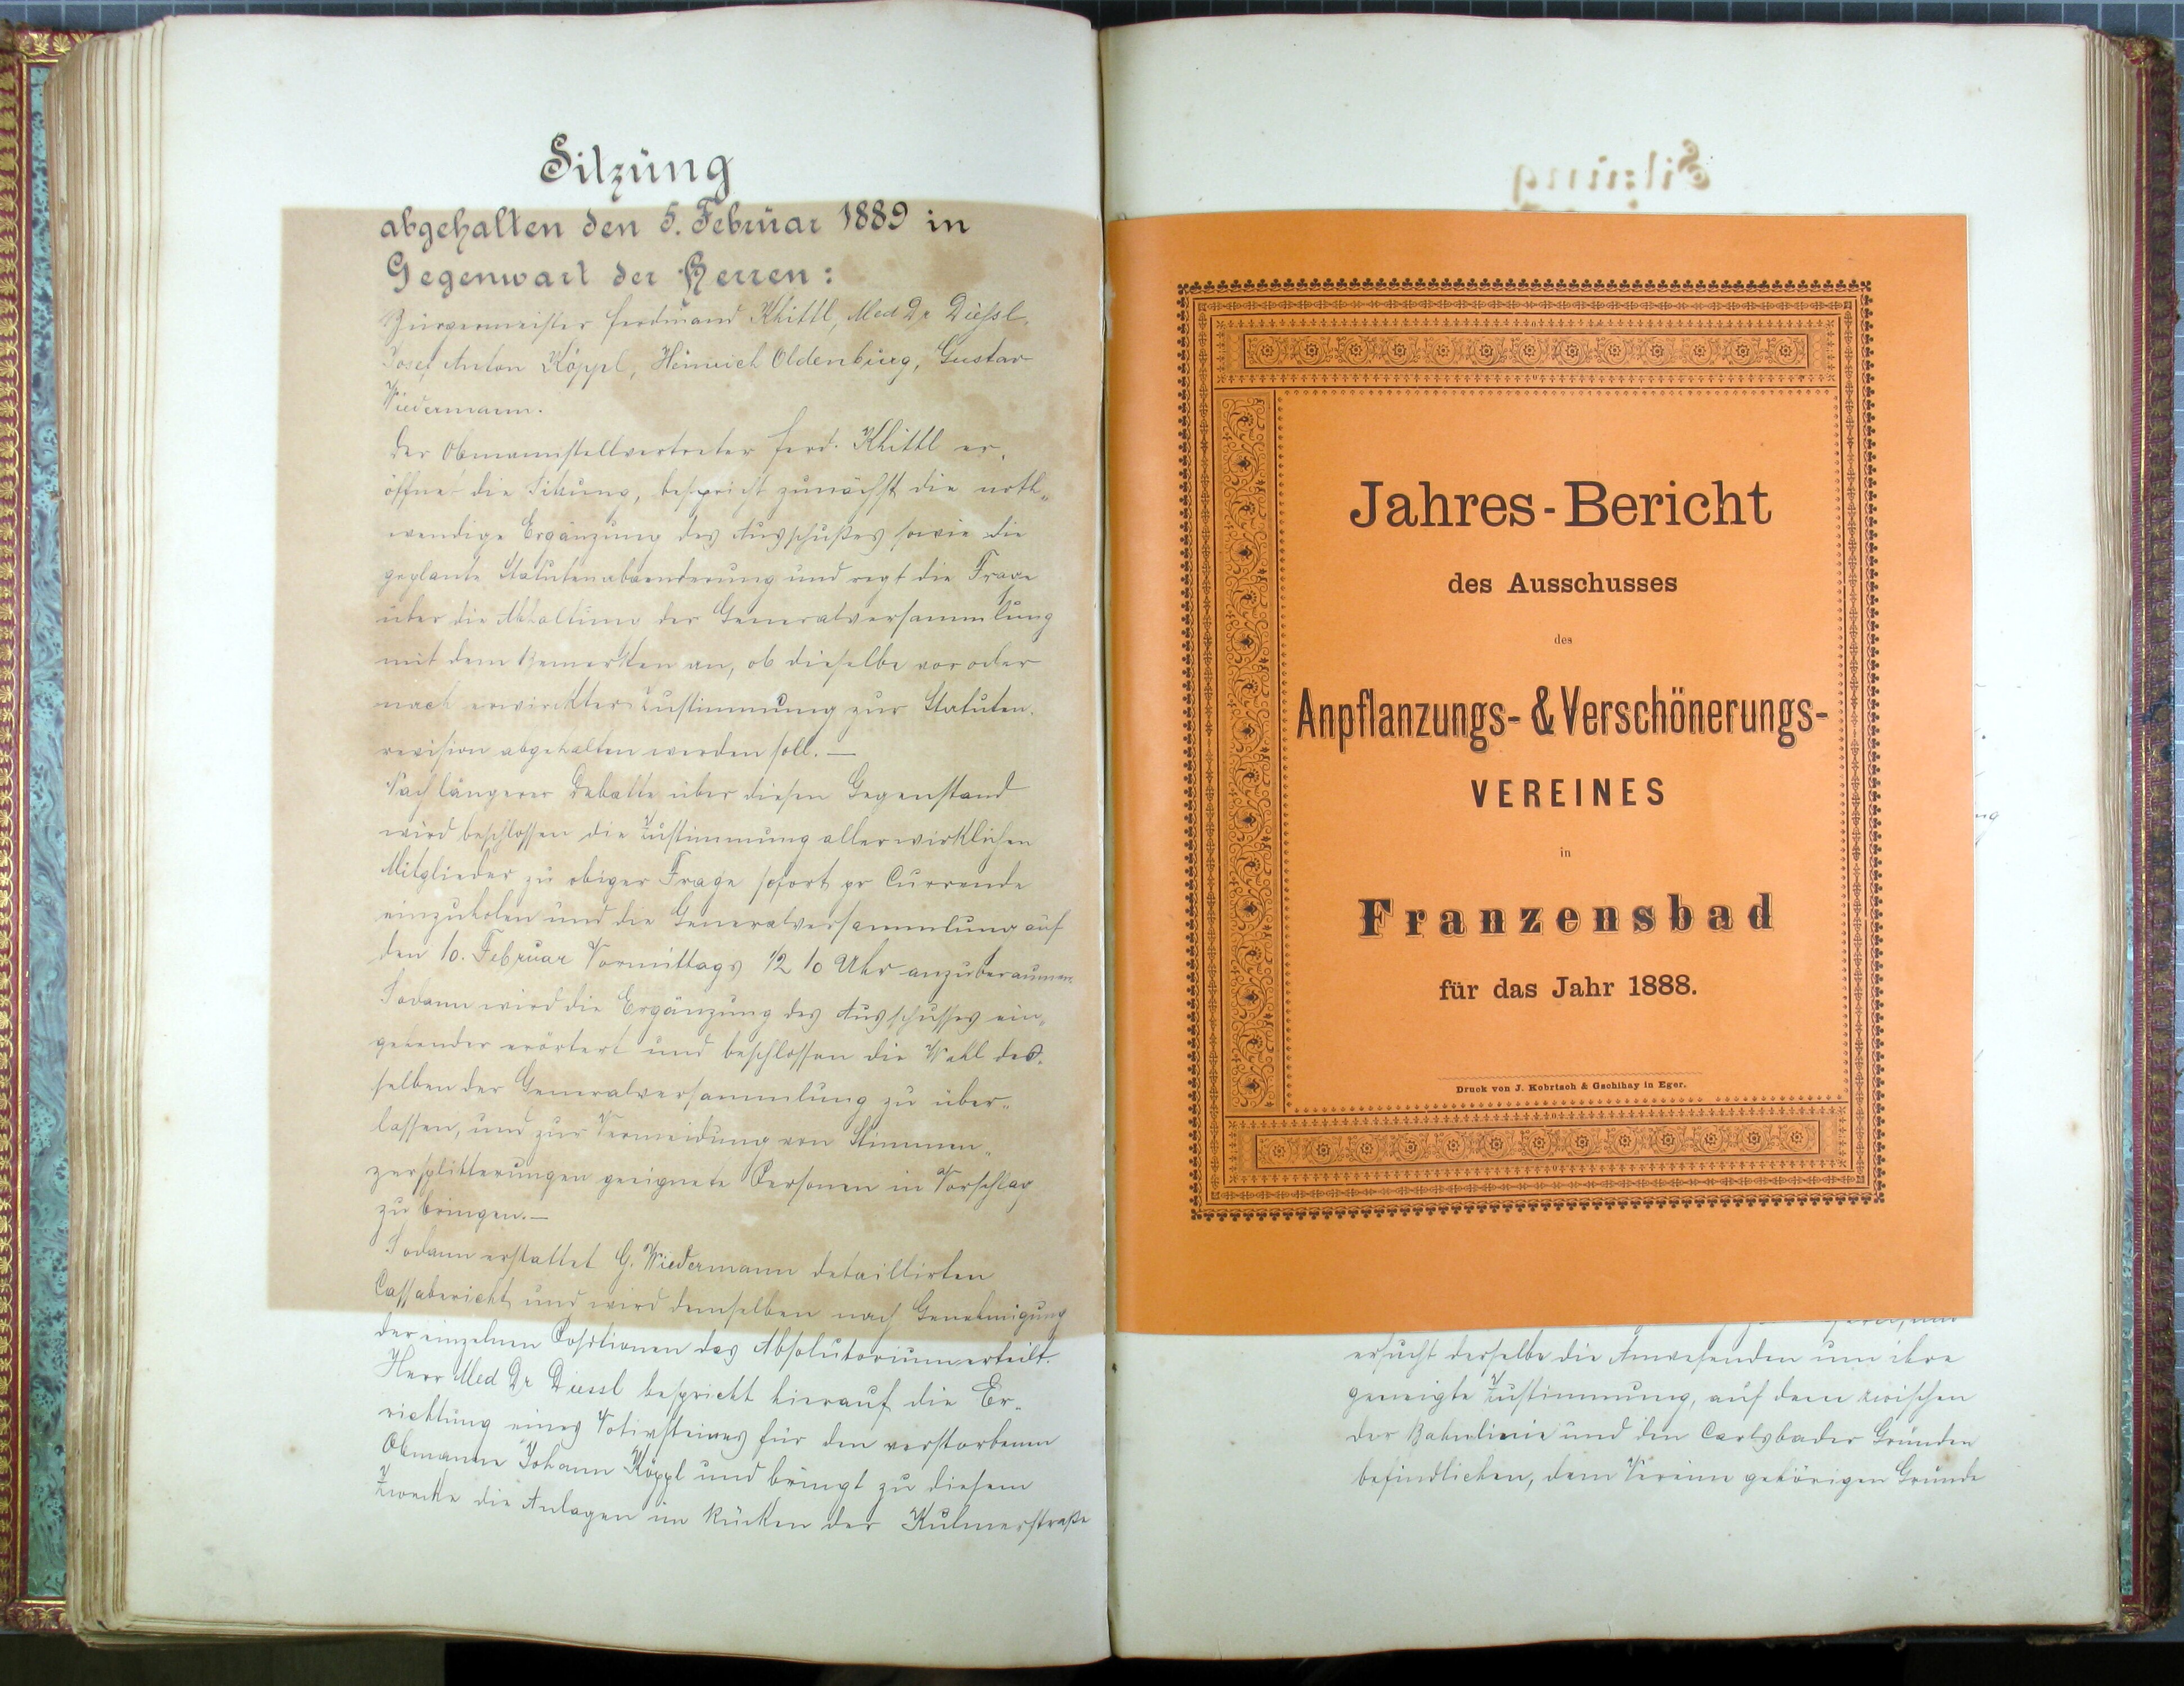 Sitzung
abgehalten den 5. Februar 1889 in
Gegenwart der Herren:
Bürgermeister Ferdinand Khittl, Med Dr Diessl,
Josef Anton Köppl, Heinrich Oldenburg, Gustav
Wiedermann.
Der Obmannstellvertreter Ferd. Khittl er-
öffnet die Sitzung, bespricht zunächst die noth-
wendige Ergänzung des Ausschußes sowie die
geplante Statutenabaenderung und regt die Frage
über die Abhaltung der Generalversammlung
mit dem Bemerken an, ob dieselbe vor oder
nach erwirkter Zustimmung zur Statuten-
revision abgehalten werden soll. —
Nach längerer Debatte über diesen Gegenstand
wird beschlossen die Zustimmung aller wirklichen
Mitglieder zu obiger Frage sofort pr Currende
einzuholen und die Generalversammlung auf
den 10. Februar Vormittags 1/2 10 Uhr anzuberaumen.
Sodann wird die Ergänzung des Ausschusses ein-
gehender erörtert und beschlossen die Wahl des-
selben der Generalversammlung zu über-
lassen, und zur Vermeidung von Stimmen-
zersplitterungen geeignete Personen in Vorschlag
zu bringen. —
Sodann erstattet G. Wiedermann detaillirten
Cassabericht und wird demselben nach Genehmigung
der einzelnen Positionen das Absolutorium erteilt.
Herr Med Dr Diessl bespricht hierauf die Er-
richtung eines Votivsteines für den verstorbenen
Obmann Johann Köppl und bringt zu diesem
Zwecke die Anlagen im Rücken der Kulmerstraße
Jahres-Bericht
des Ausschusses
des
Anpflanzungs- & Verschönerungs-
VEREINES
in
Franzensbad
für das Jahr 1888.
Druck von J. Kobrtsch & Gschihay in Eger.
ersucht derselbe die Anwesenden um ihre
geneigte Zustimmung, auf dem zwischen
der Bahnlinie und den Carlsbader Gründen
befindlichen, dem Vereine gehörigen Grunde